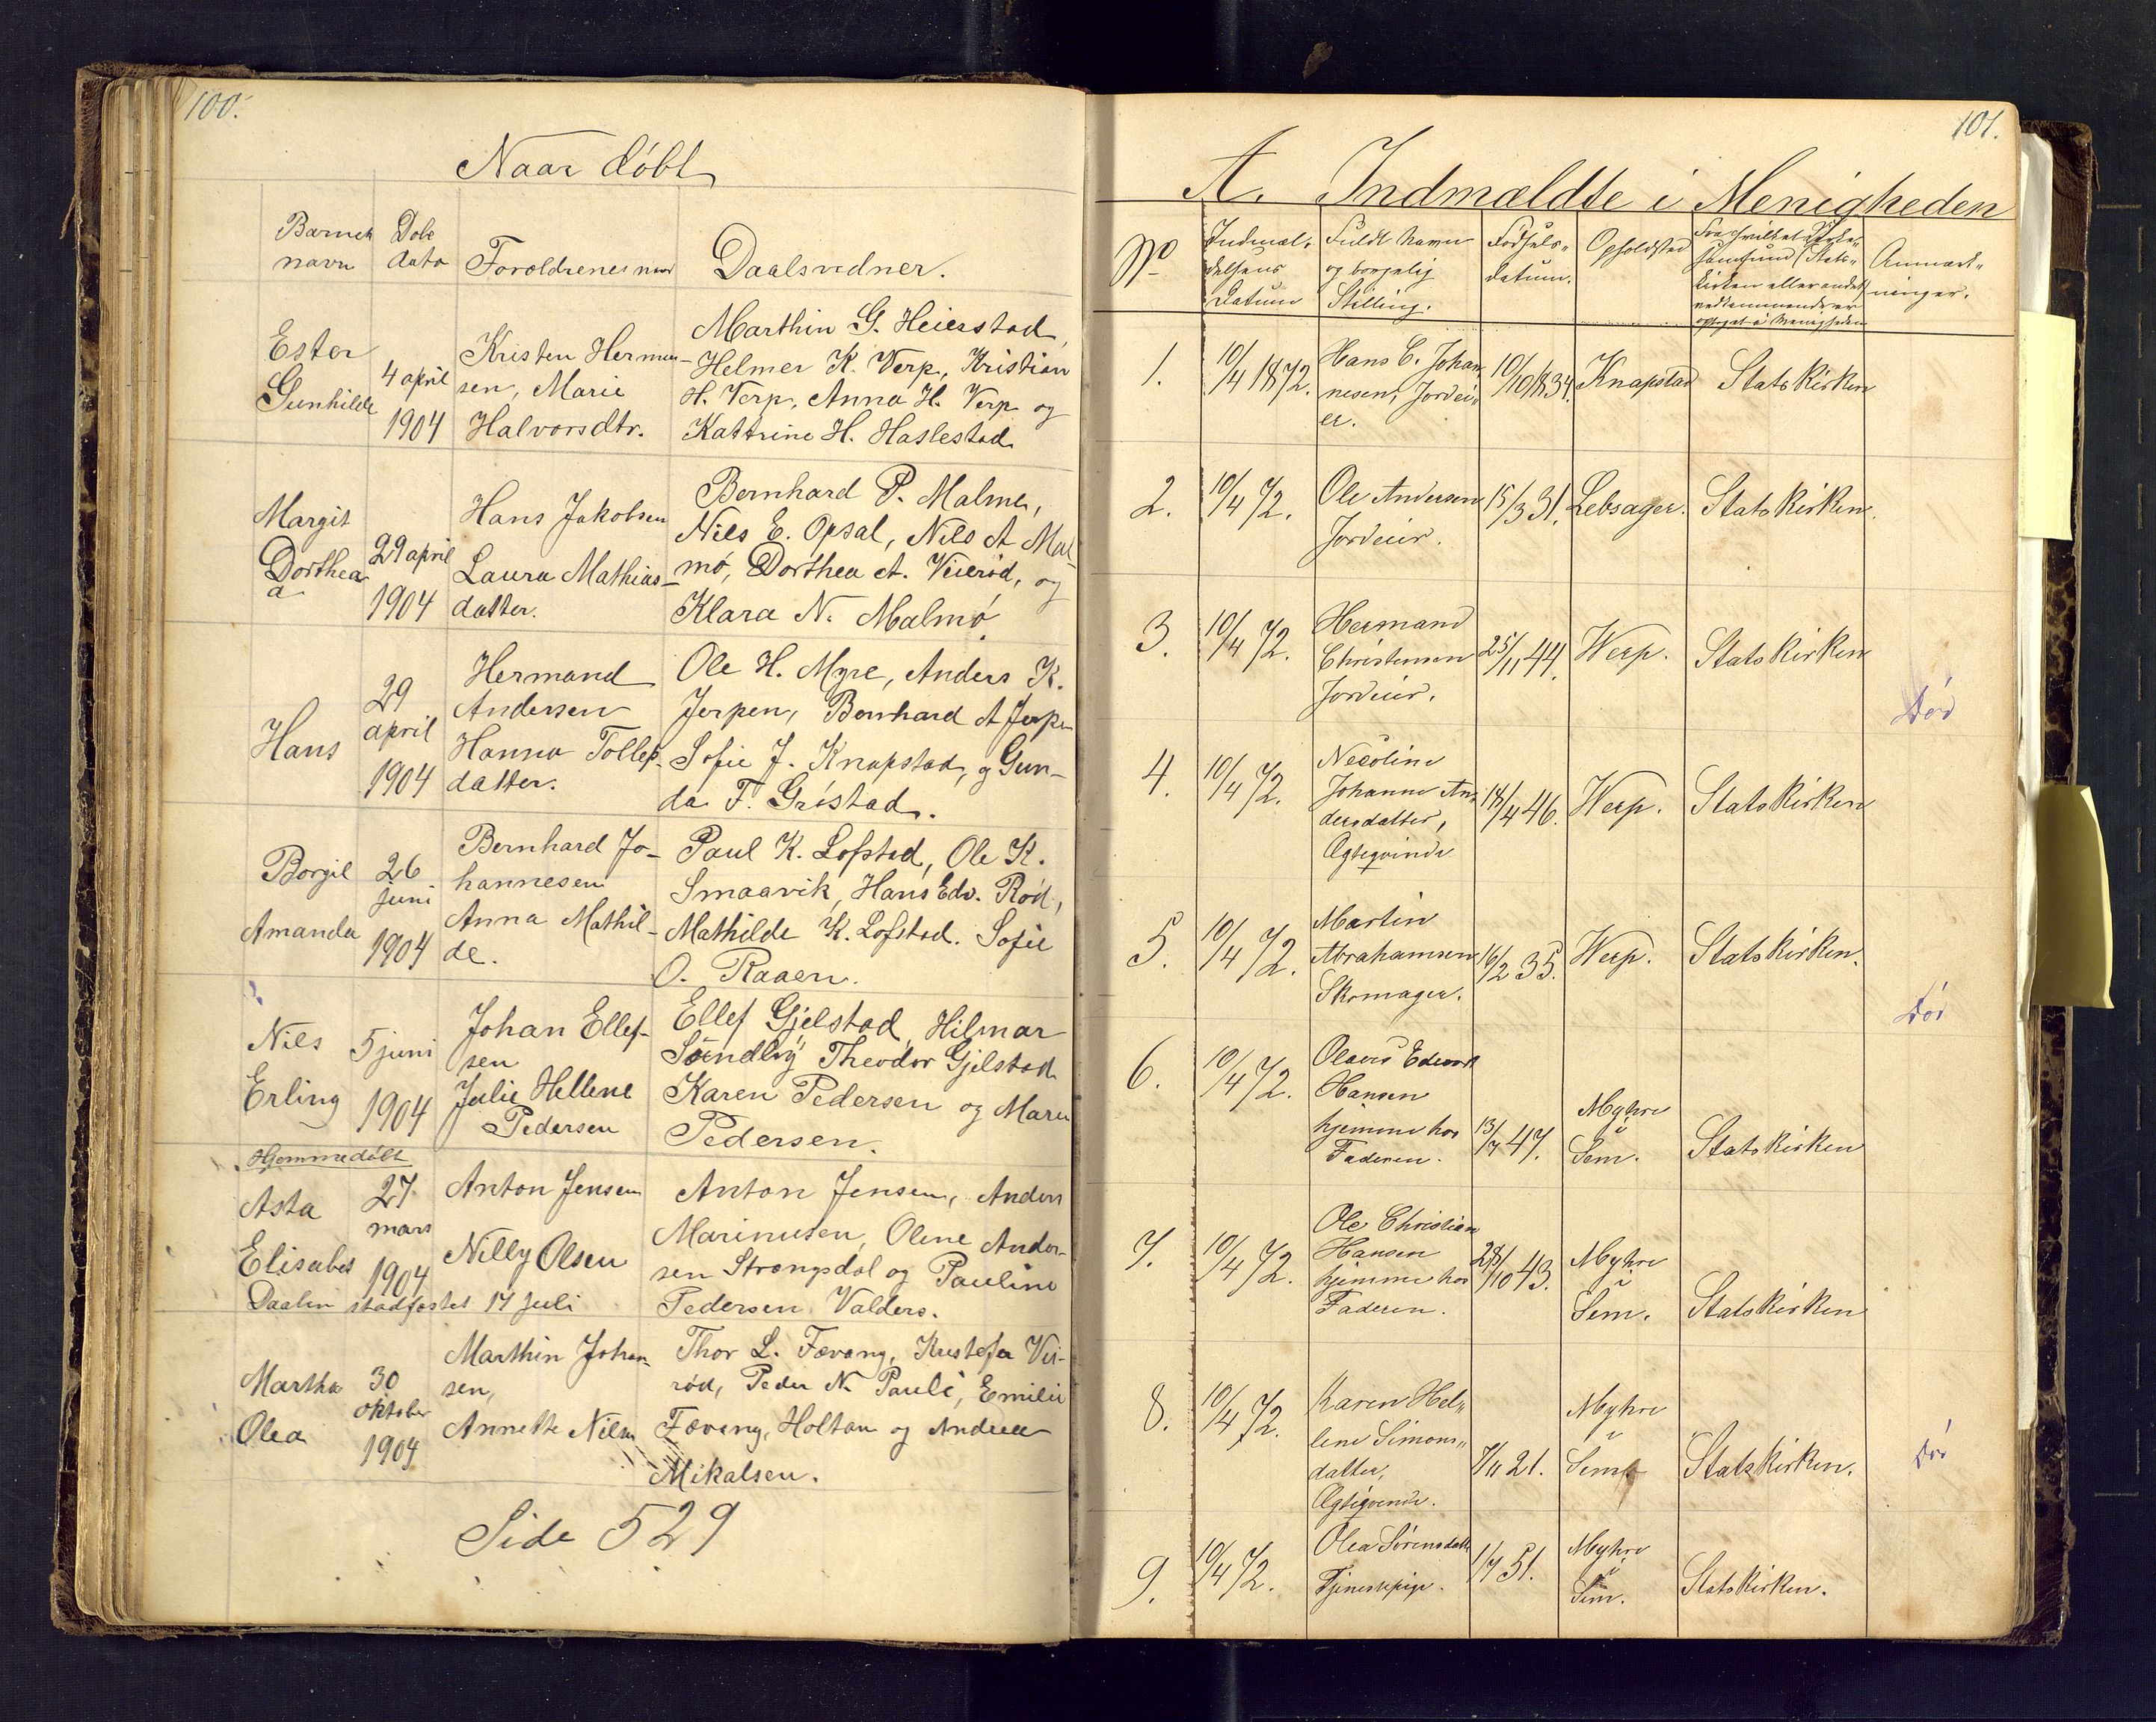 100.
Naar döbt
Barnets Dobs
navn dato Foroldrenes navn Daabsvidner.
Ester
Gunhilde
4 april
1904
Kristen Herman-
sen, Marie
Halvorsdtr.
Marthin G. Heierstad,
Helmer K. Verp, Kristian
H. Verp, Anna H. Verp og
Kattrine H. Haslestad
Margit
Dorthea
29 april
1904
Hans Jakobsen
Laura Mathias-
datter.
Bernhard P. Malmø,
Nils E. Opsal, Nils A Mal-
mö, Dorthea A. Veieröd, og
Klara N. Malmö.
Hans
29
april
1904
Hermand
Andersen
Hanna Tollefs-
datter.
Ole H. Myre, Anders K.
Jerpen, Bernhard A Jerpen
Sofie J. Knapstad, og Gun-
da F. Gristad.
Borgil
Amanda
26
juni
1904
Bernhard Jo-
hannesen
Anna Mathil-
de.
Paul K. Lofstad, Ole K.
Smaavik, Hans Edv. Röd,
Mathilde K. Lofstad. Sofie
O. Raaen.
Nils
Erling
5 juni
1904
Johan Ellef-
sen
Julie Hellene
Pedersen
Ellef Gjelstad, Hilmar
Theodor Gjelstad
Karen Pedersen og Maren
Pedersen.
Hjemmedöbt
Asta
Elisabet
27
mars
1904
Anton Jensen
Nilly Olsen
Anton Jensen, Anders
Marinusen, Olene Ander-
sen Strangsdal og Pauline
Pedersen Valders.
Daaben stadfæstet 17 juli
Martha
Olea
30
oktober
1904
Marthin Johan-
sen,
Annette Nilsen
Thor L. Fævang, Kristofer Vei-
röd, Peder N. Pauli, Emilie
Fævang, Holtan og Andrea
Mikalsen.
Side 529
101.
A. Indmældte i Menigheden
No
Indmel-
delsens
Datum
Fuldt Navn
og borgelig
Stilling.
Fødsels-
datum.
Opholdsted
Fra hvilket Kirke-
samfund (Stats-
kirken eller andet)
vedkommende er
optaget i Menigheden
Anmærk-
ninger.
1. 10/4 1872. Hans C. Johan-
nesen, Jordei-
er.
10/10 1834. Knapstad Statskirken
2. 10/4 72. Ole Andersen
Jordeier.
15/3 31. Lebsager. Statskirken.
3. 10/4 72. Hermand
Christensen
Jordeier.
25/11 44. Werp. Statskirken
Död
4. 10/4 72. Necoline
Johanne An-
dersdatter,
Ægteqvinde
18/4 46. Werp. Statskirken
5. 10/4 72. Martin
Abrahamsen
Skomager.
16/2 35. Werp. Statskirken.
Död
6. 10/4 72. Olavis Edvard
Hansen
hjemme hos
Faderen.
13/7 47. Myhre
i
Sem. Statskirken
7. 10/4 72. Ole Christian
Hansen
hjemme hos
Faderen.
28/10 43. Myhre
i
Sem. Statskirken
8. 10/4 72. Karen Hel-
lene Simons-
datter,
Ægteqvinde.
7/11 21. Myhre
i
Sem Statskirken.
Död
9. 10/4 72. Olea Sörensdatter
Tjenestepige.
1/7 51. Myhre
i
Sem. Statskirken.